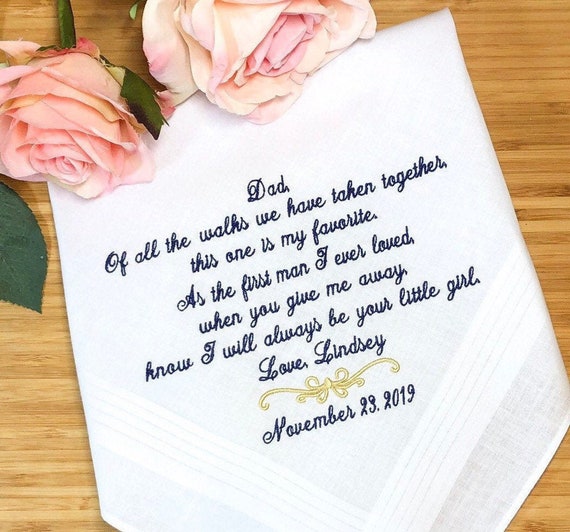 Dad,
Of all the walks we have taken together,
this one is my favorite.
As the first man I ever loved,
when you give me away,
know I will always be your little girl.
Love, Lindsey
November 23, 2019